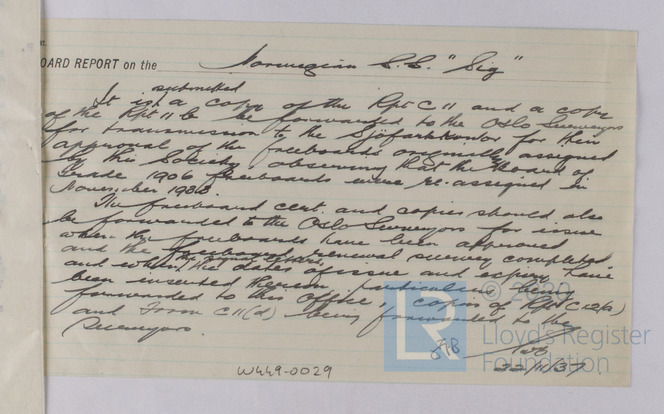 OARD REPORT on the Norwegian S.S. "Sig"
submitted
It is a copy of the Rpt C 11 and a copy
of the Rpt 11b be forwarded to the Oslo Surveyors
for transmission to the Sjofartskontor for their
approval of the freeboards originally assigned
by this Society, observing that the Board of
Trade 1906 freeboards were re-assigned in
November 193
The freeboard cert. and copies should also
be forwarded to the Oslo Surveyors for issue
when the freeboards have been approved
and the freeboard renewal survey completed
and when the dates of issue and expiry have
been inserted thereon, particulars being
forwarded to this Office, copies of Rpt C 12(a)
and Form C 11(d) being forwarded to the
Surveyors.
22/11/37
W449-0029
© 2020
LR
Lloyd's Register
Foundation